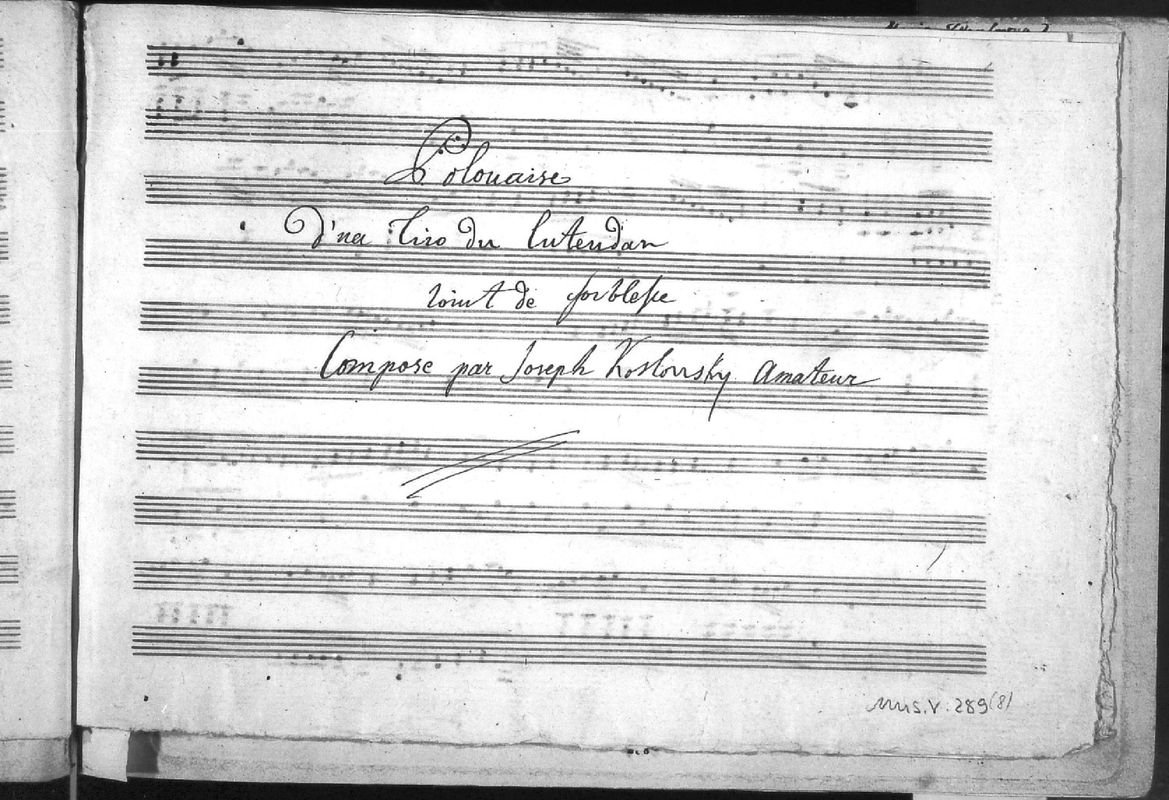 Polonaise
D'na Tiro du lutendan
point de forblesse
Compose par Joseph Koslonsky Amateur
Mus. V. 289 (8)